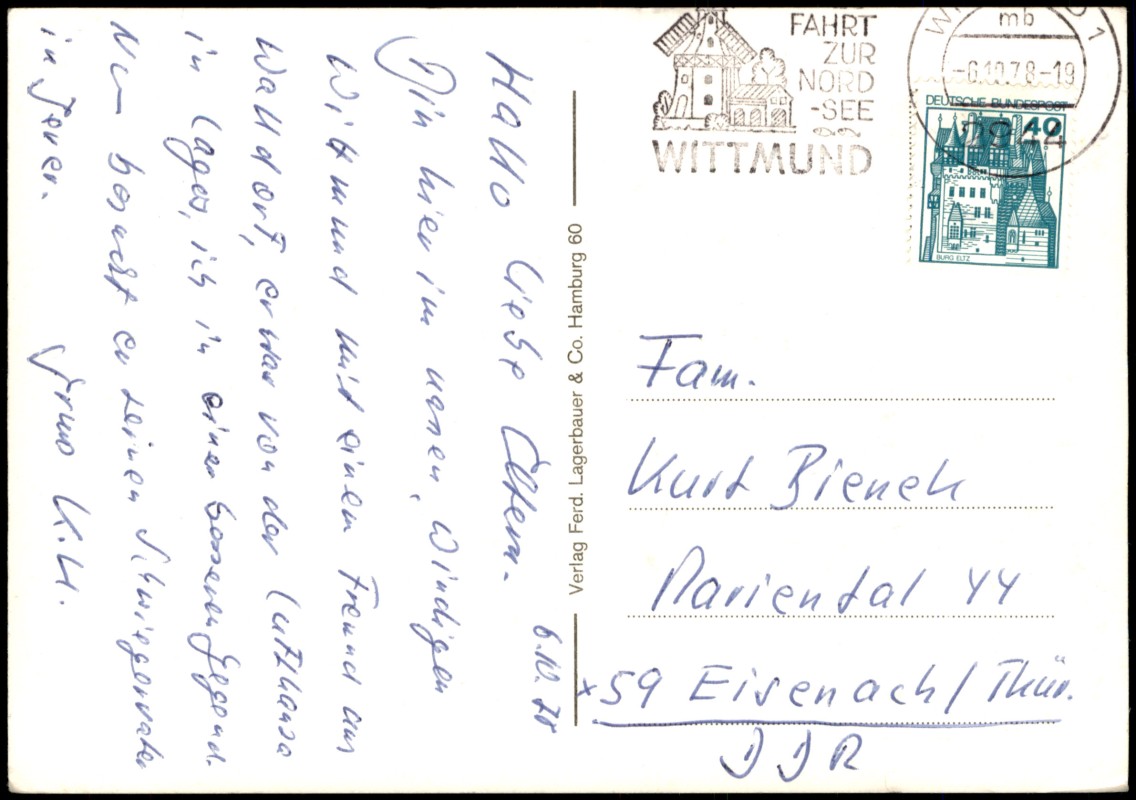 6.10.78
Hallo liebe Eltern.
Bin hier im nassen, windigen
Wittmund mit einem Freund aus
Walldorf, er war von der Lufthansa
in Lagos, ich in einer besseren Gegend.
Nun besucht er seinen Schwiegervater
in Jever.
Gruss K.H.
Verlag Ferd. Lagerbauer & Co. Hamburg 60
FAHRT
ZUR
NORD
-SEE
WITTMUND
mb
-6.10.78-19
1
2944
DEUTSCHE BUNDESPOST
40
BURG ELTZ
Fam.
Kurt Bienek
Mariental 44
x59 Eisenach/Thür.
DDR